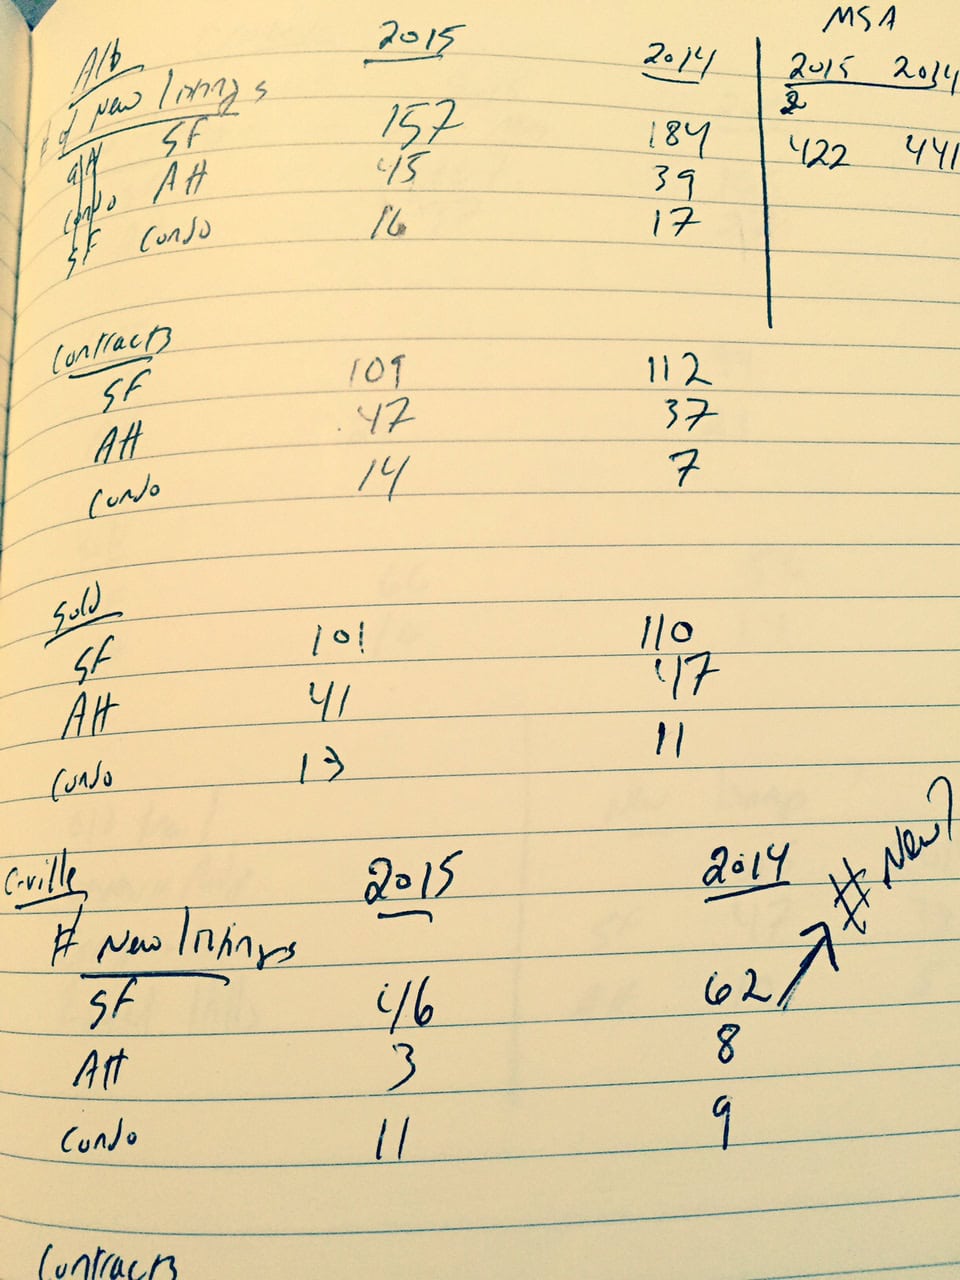 MSA
Alb 2015 2014 2015 2014
# of New listings
SF 157 184 422 441
Att 45 39
Condo
SF Condo 16 17
Contracts
SF 109 112
Att 47 37
Condo 14 7
Sold
SF 101 110
Att 41 47
Condo 13 11
C-ville 2015 2014 # New?
# New listings
SF 46 62
Att 3 8
Condo 11 9
Contracts